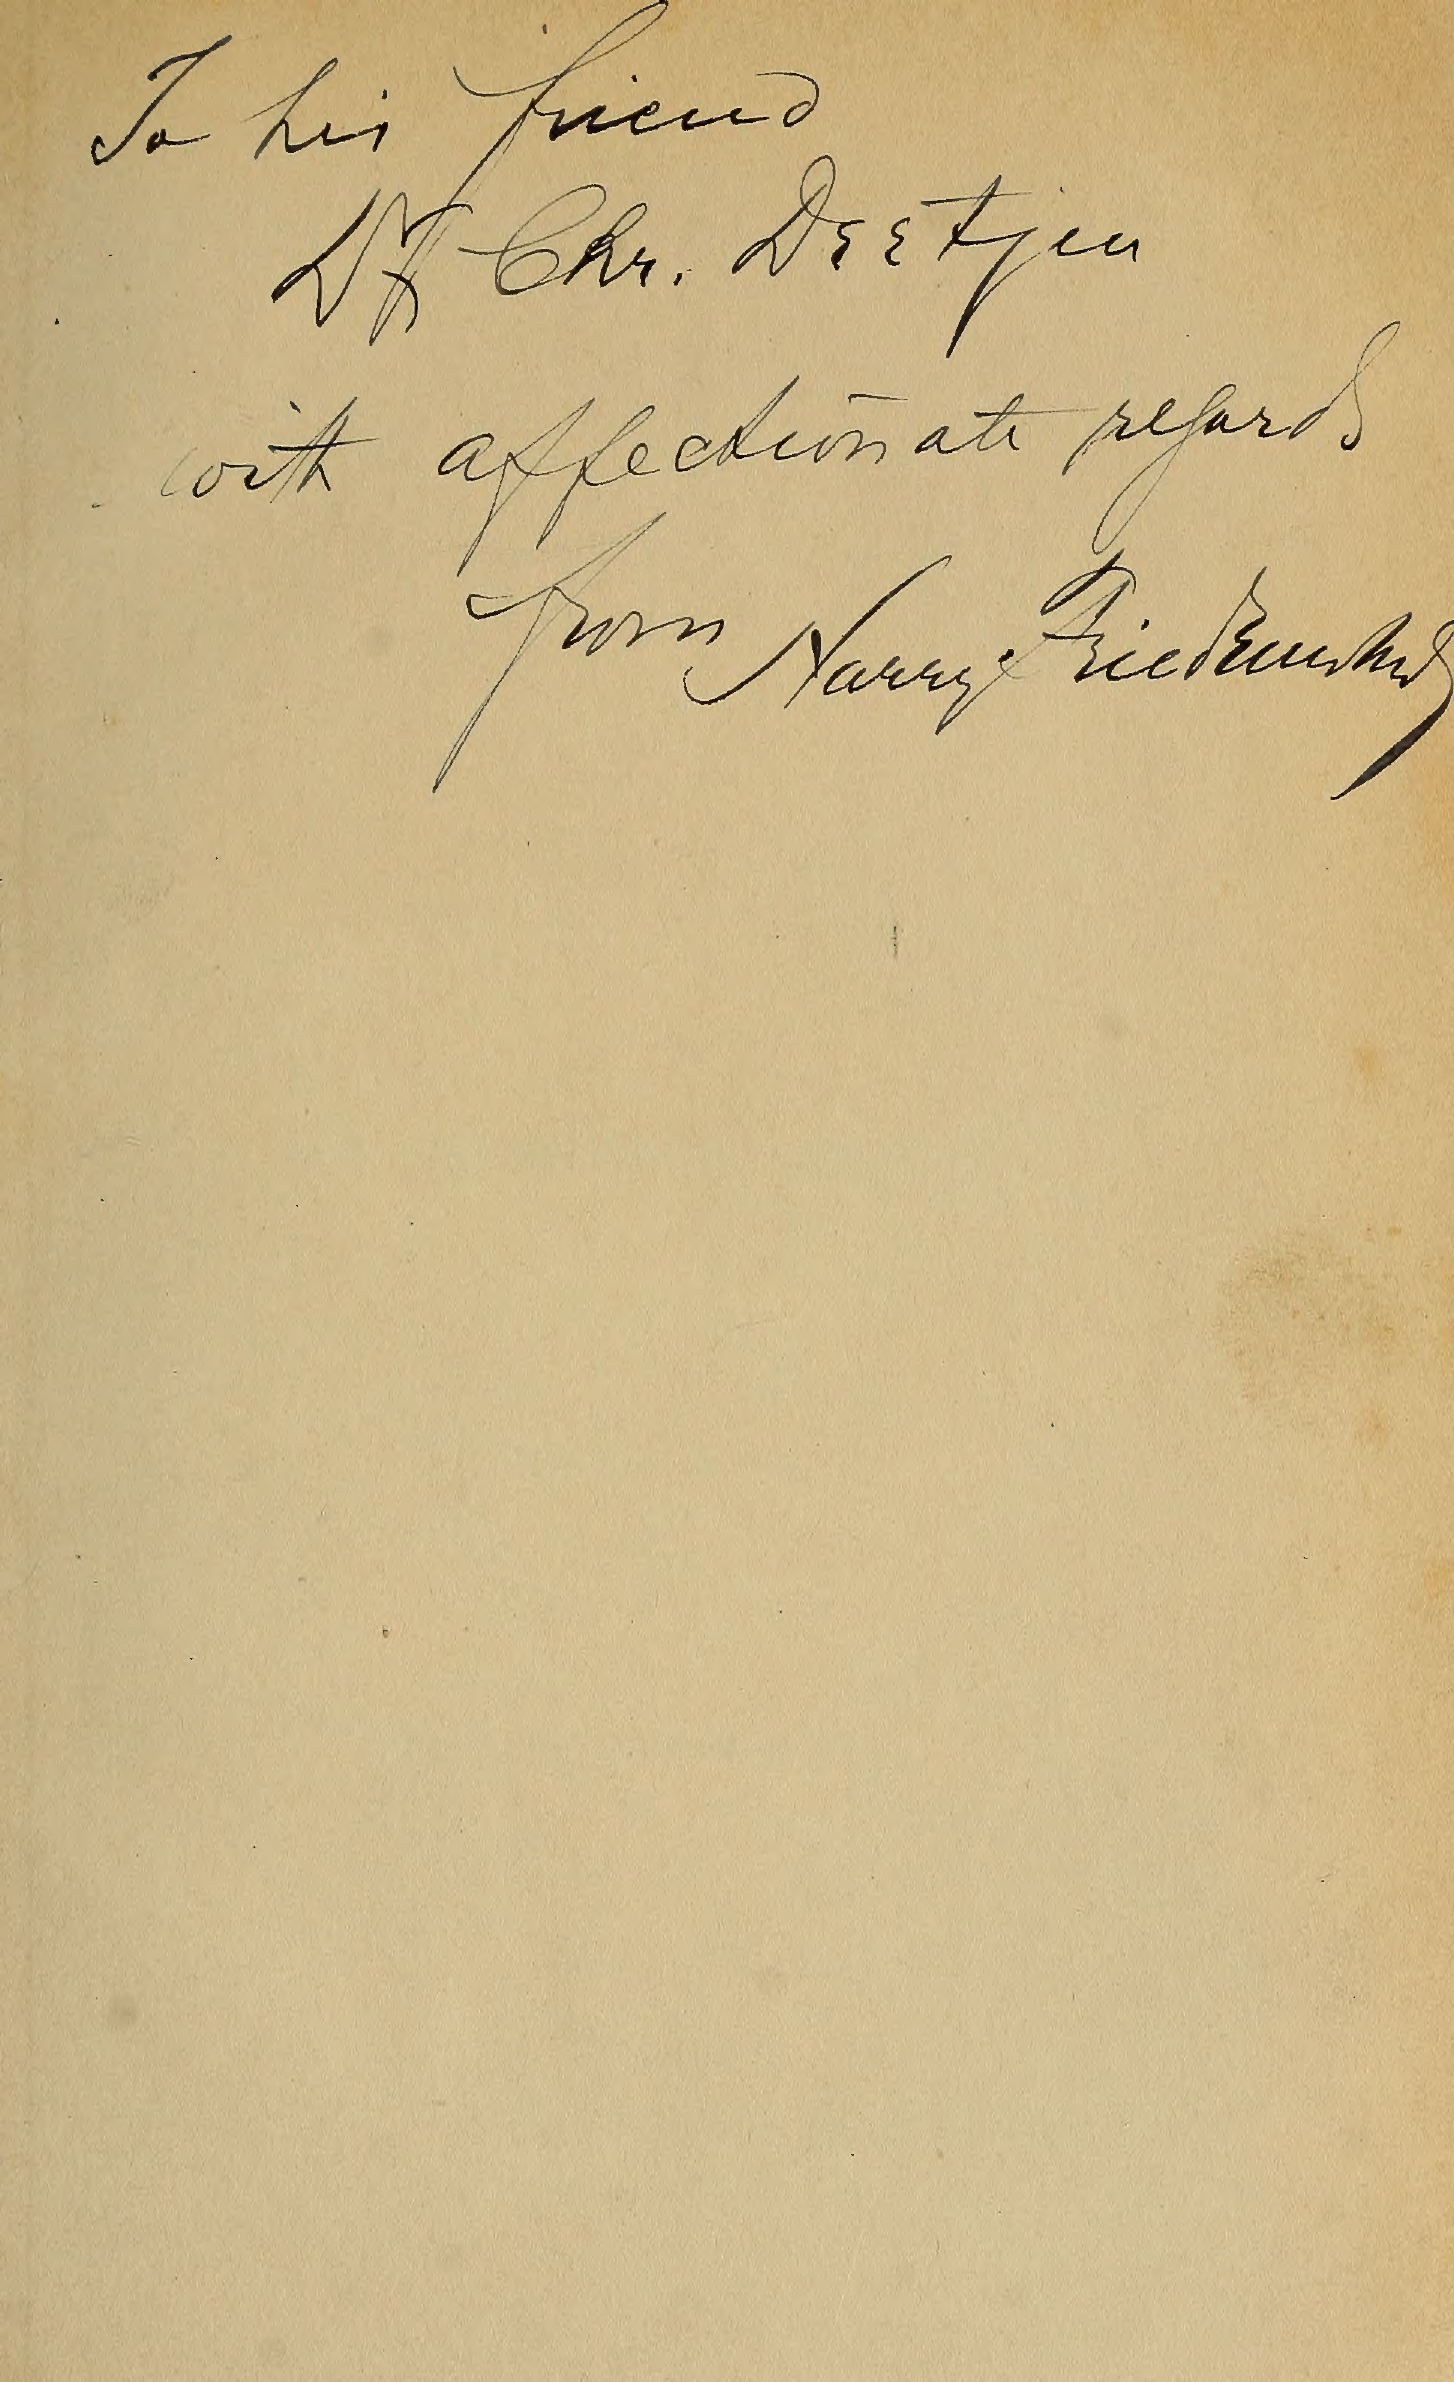 To his friend
Dr Chr. Deetjen
with affectionate regards
from Harry Friedenwald